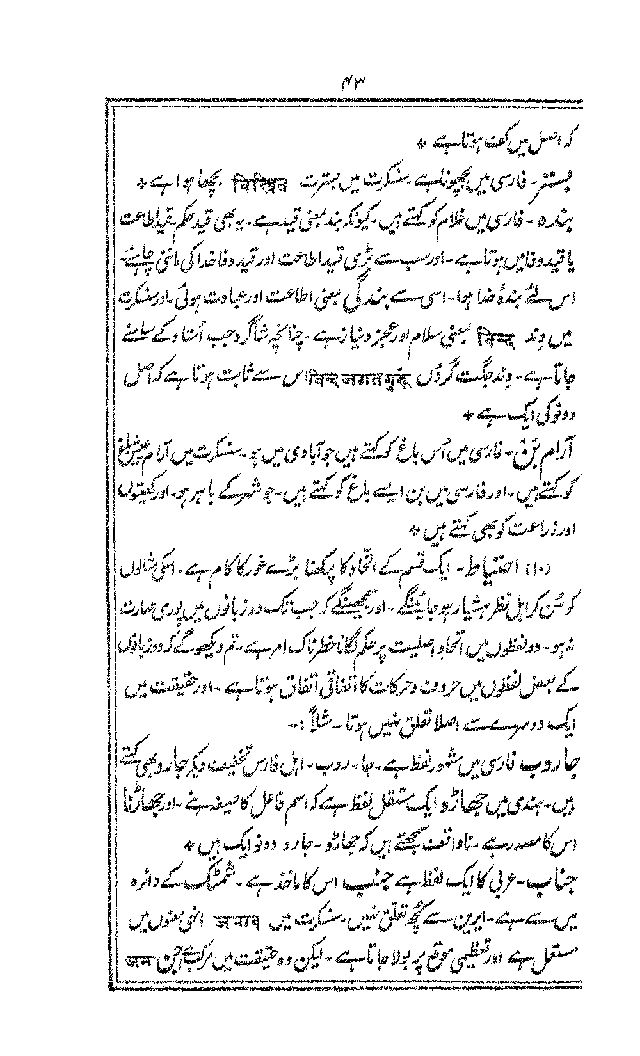 ۴۳
کہ اصل میں کہت ہوتا ہے *
بستر - فارسی میں بچھونا ہے سنسکرت میں بسترت विस्त्रित بچھا ہوا ہے *
بندہ - فارسی میں غلام کو کہتے ہیں - کیونکہ بند بمعنی قید ہے - یہ بھی قید حکم قید اطاعت
یا قید وفا میں ہوتا ہے - اور سب سے بڑی قید اطاعت اور قید وفا خدا کی ماننی چاہئے -
اس لئے بندۂ خدا ہوا - اسی سے بندگی بمعنی اطاعت اور عبادت ہوئی - اور سنسکرت
میں وند विन्द بمعنی سلام اور عجز و نیاز ہے - چنانچہ شاگرد جب اُستاد کے سامنے
جاتا ہے - وند جگت گروں विन्द जगत गुरूं اس سے ثابت ہوتا ہے کہ اصل
دونو کی ایک ہے *
آرام بن - فارسی میں اُس باغ کو کہتے ہیں جو آبادی میں ہو - سنسکرت میں آرام باغ
کو کہتے ہیں - اور فارسی میں بن ایسے باغ کو کہتے ہیں - جو شہر کے باہر ہو - اور کھیتوں
اور زراعت کو بھی کہتے ہیں *
(۱۰) احتیاط - ایک قسم کے اتحاد کا پرکھنا بڑے غور کا کام ہے - اسکی مثالوں
کو سُن کر اہل نظر ہشیار ہو جائینگے - اور سمجھینگے کہ جب تک دو زبانوں میں پوری مہارت
نہ ہو - دو لفظوں میں اتحاد اصلیت پر حکم لگانا خطرناک امر ہے - تم دیکھو گے کہ دو زبانوں
کے بعض لفظوں میں حروف و حرکات کا اتفاقی اتفاق ہوتا ہے - اور حقیقت میں
ایک دوسرے سے اصلا تعلق نہیں ہوتا - مثلاً :-
جاروب فارسی میں مشہور لفظ ہے - جا - روب - اہل فارس تخفیف دیکر جارو بھی کہتے
ہیں - ہندی میں جھاڑو ایک مستقل لفظ ہے کہ اسم فاعل کا صیغہ ہے - اور جھاڑنا
اس کا مصدر ہے - ناواقف سمجھتے ہیں کہ جھاڑو - جارو دونو ایک ہیں *
جناب - عربی کا ایک لفظ ہے جنب اس کا ماخذ ہے - سمٹک کے دائرہ
میں سے ہے - ایرین سے کچھ تعلق نہیں - سنسکرت میں जनाब انہی معنوں میں
مستعمل ہے اور تعظیمی موقع پر بولا جاتا ہے - لیکن وہ حقیقت میں مرکب ہے جن जन